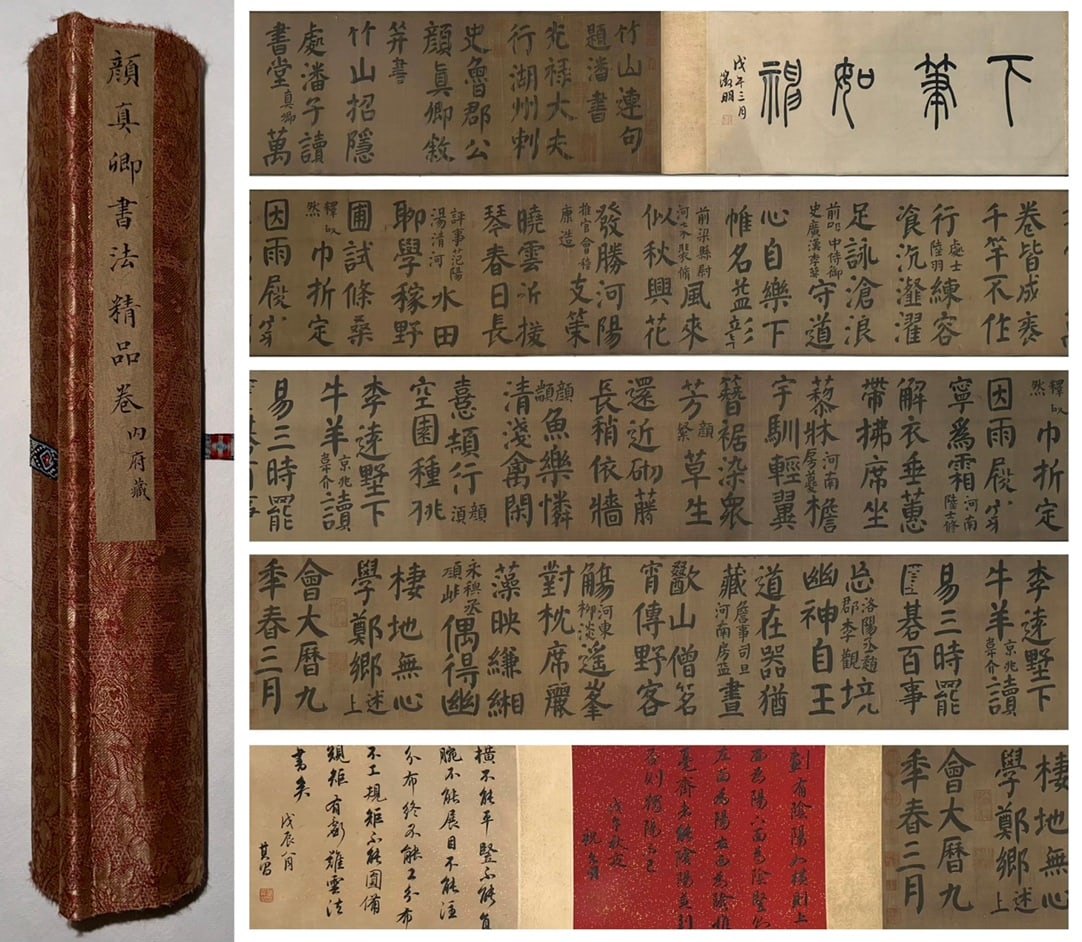 顏真卿書法精品卷 內府藏
下筆如神
戊午三月
徵明
竹山連句
題潘書
光祿大夫
行湖州刺
史魯郡公
顏真卿敘
并書
竹山招隱
處潘子讀
書堂真卿萬
卷皆成袠
千竿不作
行處士陸羽練容
飡沆瀣濯
足詠滄浪
前殿中侍御史廣漢李萼守道
心自樂下
帷名益彰
前梁縣尉河東裴脩風來
似秋興花
發勝河陽
推官會稽康造支策
曉雲近援
琴春日長
評事范陽湯清河水田
聊學稼野
圃試條桑
釋皎然巾折定
因雨屐穿
釋皎然巾折定
因雨屐穿
寧為霜河南陸士修
解衣垂蕙
帶拂席坐
藜牀河南房夔檐
宇馴輕翼
簪裾染眾
芳顏粲草生
還近砌藤
長稍依牆
顏顓魚樂憐
清淺禽閑
憙頡行顏須
空園種桃
李遠墅下
牛羊京兆韋介讀
易三時罷
李遠墅下
牛羊京兆韋介讀
易三時罷
圍棊百事
忘洛陽丞趙郡李觀境
幽神自王
道在器猶
藏詹事司直河南房益晝
歠山僧茗
宵傳野客
觴河東柳淡遙峯
對枕席麗
藻映縑緗
永穆丞顏峴偶得幽
棲地無心
學鄭鄉述上
會大曆九
年春三月
棲地無心
學鄭鄉述上
會大曆九
年春三月
劃有陰陽如橫則上
面為陽下面為陰豎則
左面為陽右面為陰惟
毫齊者能陰陽兼到
否則獨陽而已
戊午秋夜
祝允明
橫不能平豎不能直
腕不能展目不能注
分布終不能工分布
不工規矩不能圓備
規矩有虧難云法
書矣
戊辰八月
其昌